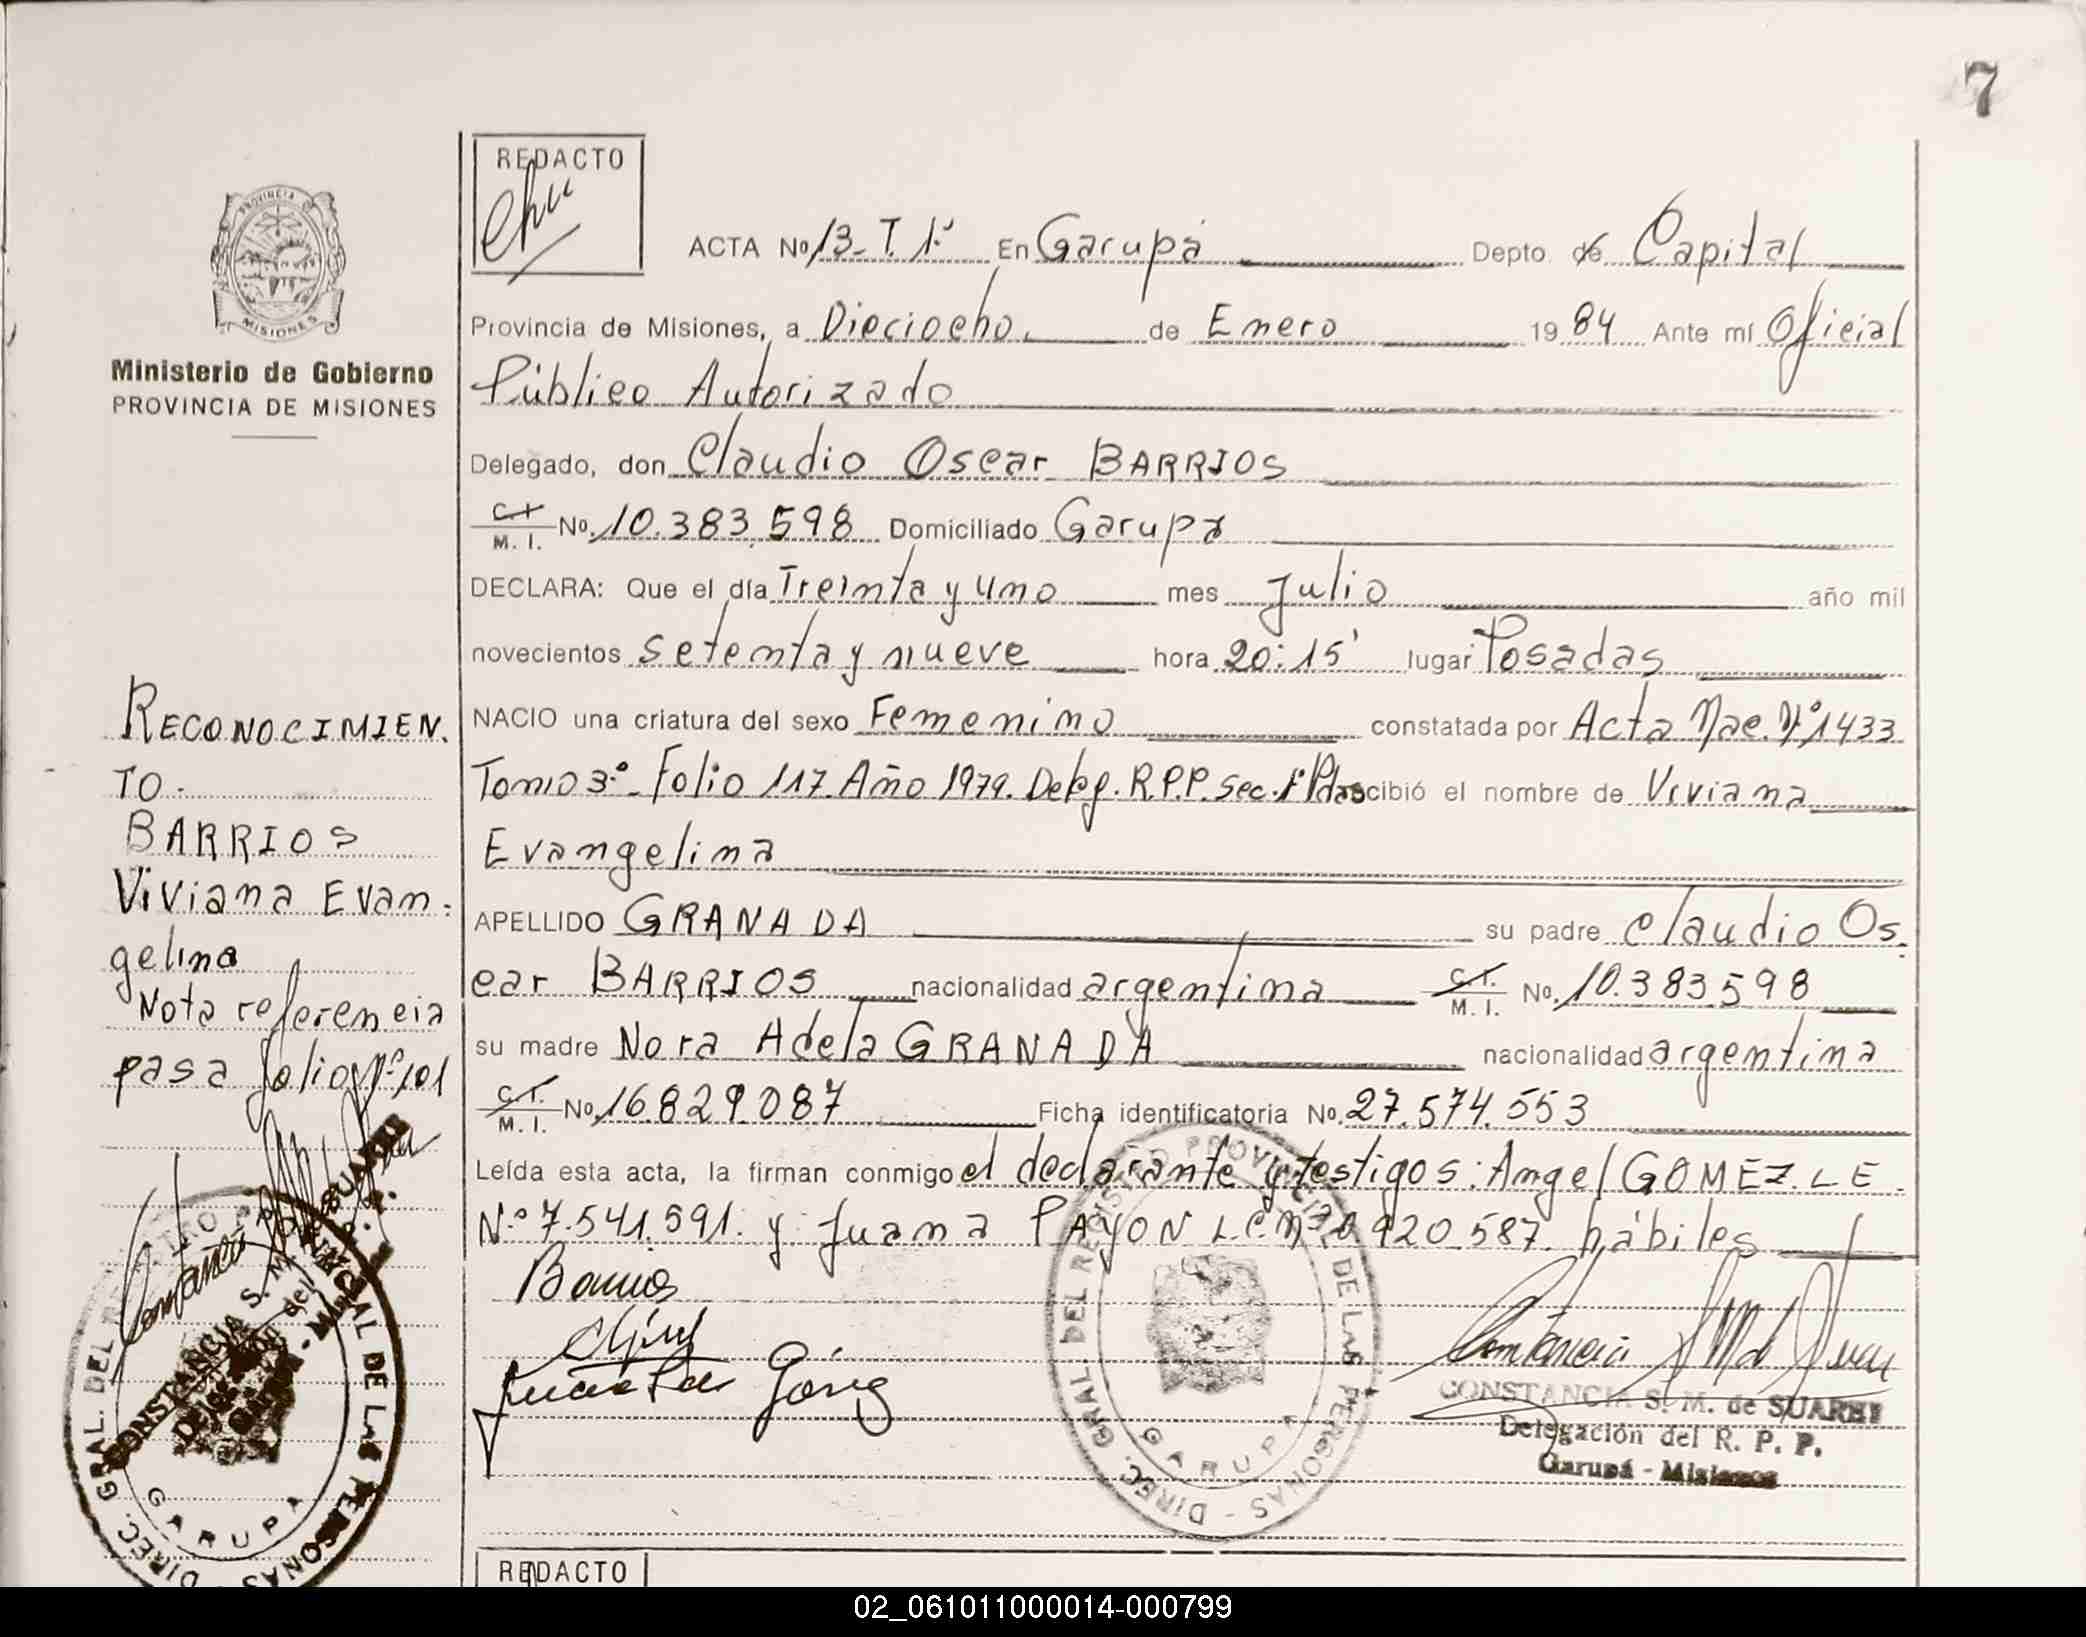 7
REDACTO
PROVINCIA
MISIONES
Ministerio de Gobierno
PROVINCIA DE MISIONES
ACTA Nº 13-T. 1º En Garupá Depto de Capital
Provincia de Misiones, a Dieciocho. de Enero 1984 Ante mí Oficial
Público Autorizado
Delegado, don Claudio Oscar BARRIOS
C.I. M. I. Nº. 10.383.598 Domiciliado Garupá
DECLARA: Que el día Treinta y Uno mes Julio año mil
novecientos setenta y nueve hora 20:15' lugar Posadas
NACIO una criatura del sexo Femenino constatada por Acta Nac. Nº 1433
Tomo 3º- Folio 117 Año 1979. Deleg. R.P.P. Sec. 1º Pdas cibió el nombre de Viviana
Evangelina
APELLIDO GRANADA su padre Claudio Os-
car BARRIOS nacionalidad argentina C.I. M. I. Nº. 10.383.598
su madre Nora Adela GRANADA nacionalidad argentina
C.I. M. I. Nº. 16.829.087 Ficha identificatoria Nº. 27.574.553
Leída esta acta, la firman conmigo el declarante y testigos: Angel GOMEZ. L E.
N.º 7.541.591. y Juana PAYON L.C. Nº 920.587. hábiles
Barrios
CONSTANCIA S. M. de SUAREZ
Delegación del R. P. P.
Garupá - Misiones
DIREC. GRAL. DEL REGISTRO PROVINCIAL DE LAS PERSONAS -
GARUPA
RECONOCIMIEN-
TO-
BARRIOS
Viviana Evan-
gelina
Nota referencia
pasa folio Nº 101
CONSTANCIA S. M. de SUAREZ
DIREC. GRAL. DEL REGISTRO PROVINCIAL DE LAS PERSONAS -
GARUPA
REDACTO
02_061011000014-000799